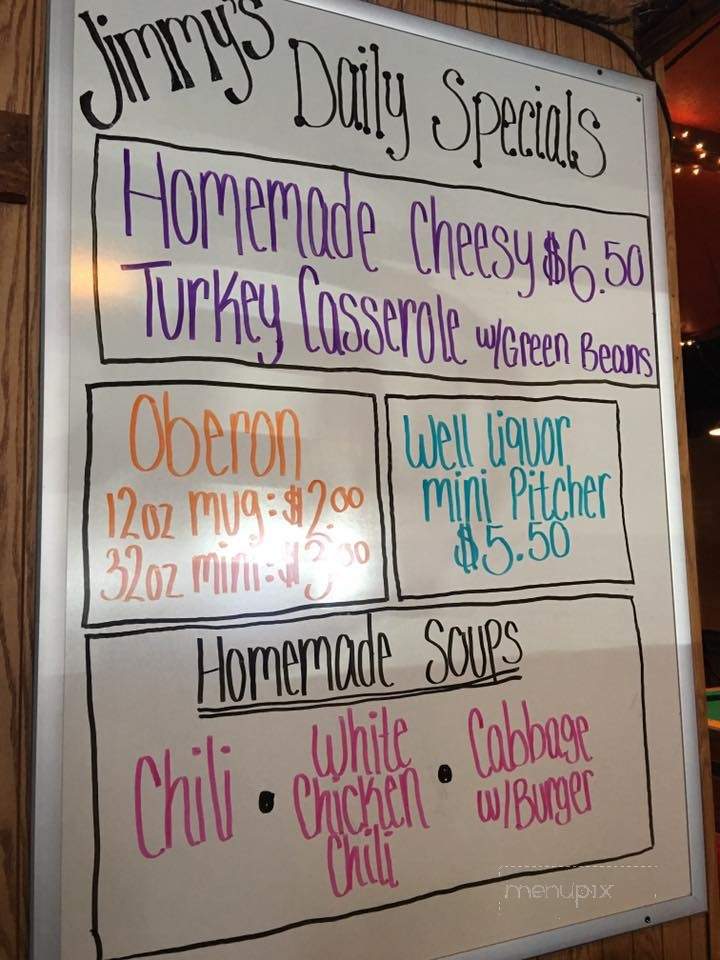 Jimmy's Daily Specials
Homemade Cheesy $6.50
Turkey Casserole w/Green Beans
Oberon
12oz mug: $2.00
32oz mini: $3.00
Well Liquor
mini Pitcher
$5.50
Homemade Soups
Chili • White Chicken Chili • Cabbage w/Burger
menupix